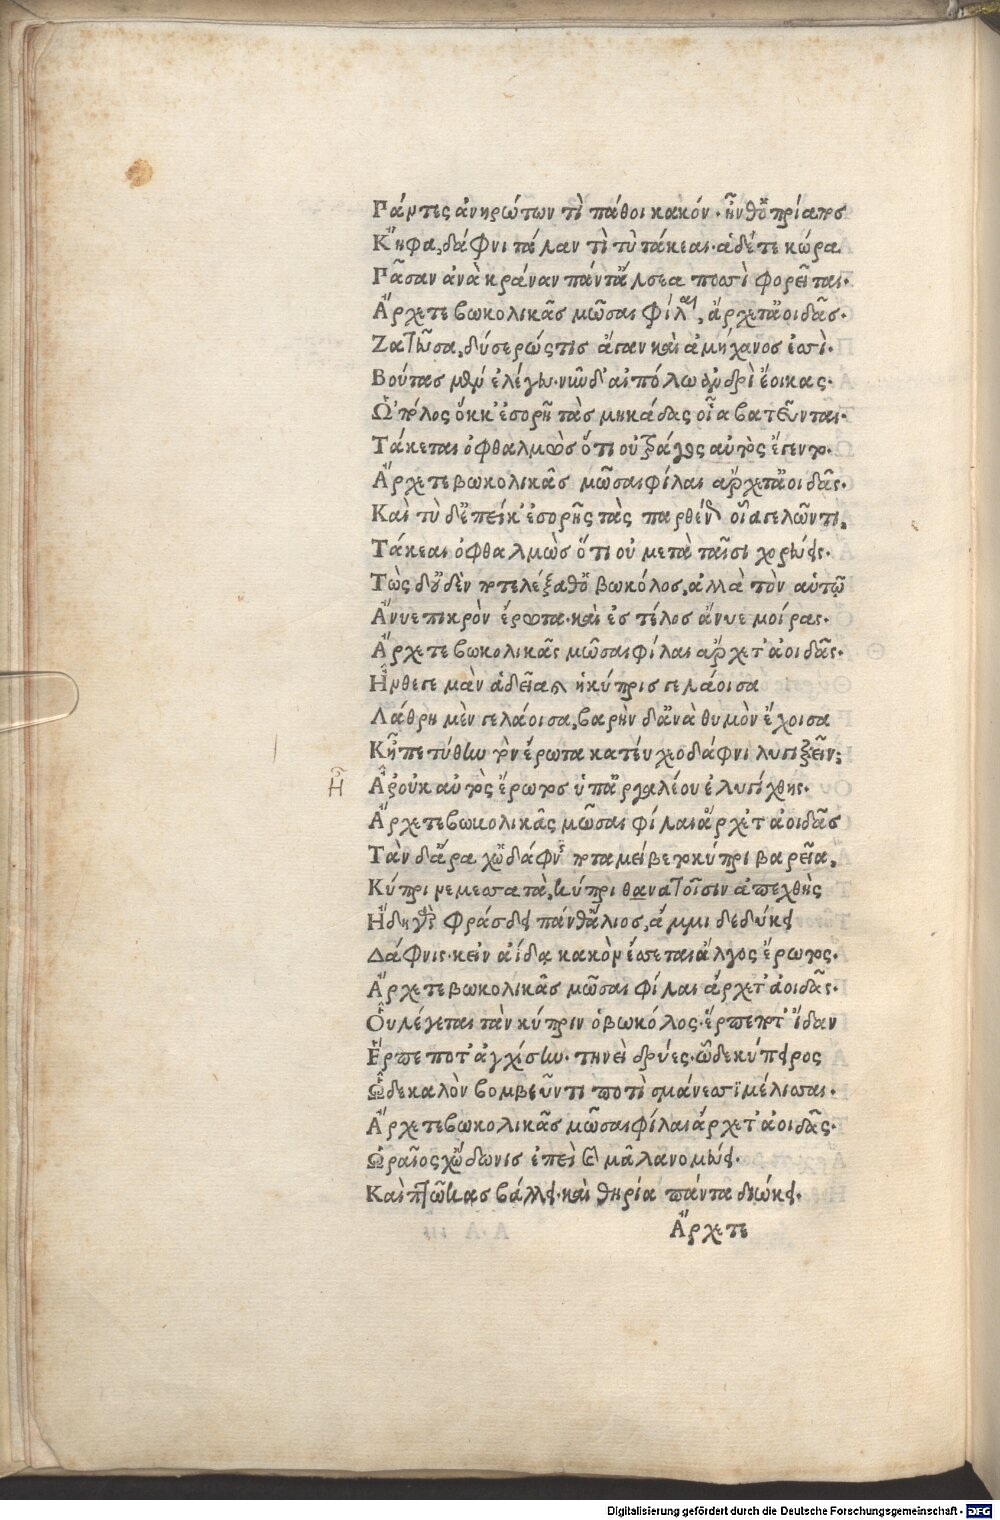 Πάντες ἀνηρώτων τὶ πάθοι κακόν· ἦνθ' ὁ πρίαπος
Κἤφα, δάφνι τάλαν τὶ τὺ τάκεαι· ἁ δέ τε κώρα
Πᾶσαν ἀνὰ κράναν πάντ' ἄλσεα ποσσὶ φορεῖται·
Ἄρχετε βωκολικᾶς μῶσαι φίλαι, ἄρχετ' ἀοιδᾶς·
Ζατοῦσα, δύσερώς τις ἄγαν καὶ ἀμήχανος ἐσσὶ·
Βούτας μὲν ἐλέγου· νῦν δ' αἰπόλω ἀνδρὶ ἔοικας·
Ὡ' πόλος ὅκκ' ἐσορῆ τὰς μηκάδας οἷα βατεῦνται·
Τάκεται ὀφθαλμὼς ὅτι οὐ τράγος αὐτὸς ἔγεντο·
Ἄρχετε βωκολικᾶς μῶσαι φίλαι ἄρχετ' ἀοιδᾶς·
Καὶ τὺ δ' ἐπεί κ' ἐσορῆς τὰς παρθένους οἷα γελῶντι,
Τάκεαι ὀφθαλμὼς ὅτι οὐ μετὰ ταῖσι χορεύεις·
Τὼς δ' οὐδὲν ποτελέξαθ' ὁ βωκόλος, ἀλλὰ τὸν αὑτῶ
Ἄνυε πικρὸν ἔρωτα· καὶ ἐς τέλος ἄνυε μοίρας·
Ἄρχετε βωκολικᾶς μῶσαι φίλαι ἄρχετ' ἀοιδᾶς·
Ἦνθε γε μὰν ἁδεῖα καὶ ἡ κύπρις γελάοισα
Λάθρη μὲν γελάοισα, βαρὴν δ' ἀνὰ θυμὸν ἔχοισα
Κἦπε τύ θην τὸν ἔρωτα κατεύχεο δάφνι λυγιξεῖν;
Ἆρ' οὐκ αὐτὸς ἔρωτος ὑπ' ἀργαλέου ἐλυγίχθης·
Ἄρχετε βωκολικᾶς μῶσαι φίλαι ἄρχετ' ἀοιδᾶς
Τὰν δ' ἄρα χὡ δάφνις ποταμείβετο κύπρι βαρεῖα,
Κύπρι νεμεσσατὰ, κύπρι θνατοῖσιν ἀπεχθὴς
Ἤδη γὰρ φράσδει πάνθ' ἅλιος, ἄμμι δεδύκει
Δάφνις· κεἰν ἀίδα κακὸν ἔσσεται ἄλγος ἔρωτος·
Ἄρχετε βωκολικᾶς μῶσαι φίλαι ἄρχετ' ἀοιδᾶς·
Οὗ λέγεται τὰν κύπριν ὁ βωκόλος· ἕρπε ποτ' ἴδαν
Ἕρπε ποτ' ἀγχίσην· τηνεὶ δρύες· ὧδε κύπειρος
Ὧδε καλὸν βομβεῦντι ποτὶ σμάνεσσι μέλισσαι·
Ἄρχετε βωκολικᾶς μῶσαι φίλαι ἄρχετ' ἀοιδᾶς·
Ὡραῖος χὥδωνις ἐπεὶ καὶ μᾶλα νομεύει·
Καὶ πτῶκας βάλλει· καὶ θηρία πάντα διώκει·
Ἄρχετε
Ἦ
Digitalisierung gefördert durch die Deutsche Forschungsgemeinschaft - DFG